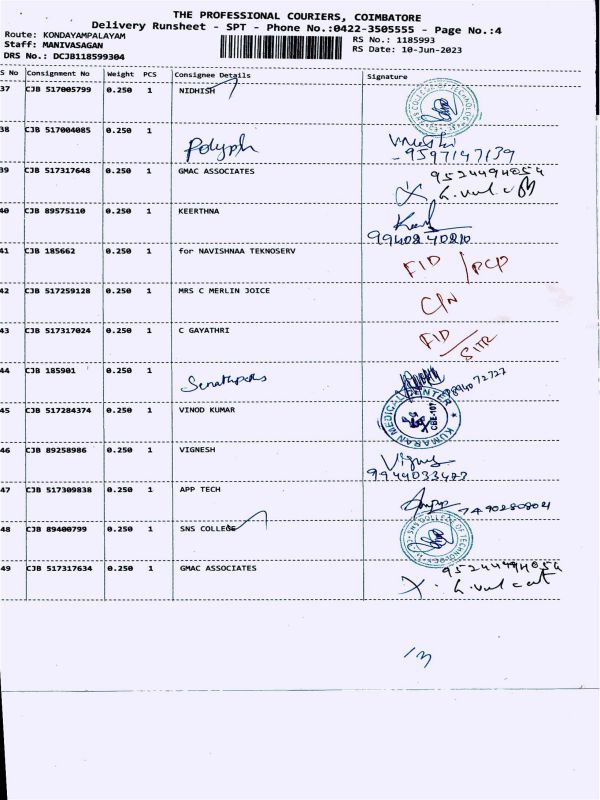 THE PROFESSIONAL COURIERS, COIMBATORE
Delivery Runsheet - SPT - Phone No.:0422-3505555 - Page No.:4
Route: KONDAYAMPALAYAM
Staff: MANIVASAGAN
DRS No.: DCJB118599304
RS No.: 1185993
RS Date: 10-Jun-2023
S No Consignment No Weight PCS Consignee Details Signature
37 CJB 517005799 0.250 1 NIDHISH
38 CJB 517004085 0.250 1
9597147139
39 CJB 517317648 0.250 1 GMAC ASSOCIATES 9524494054
40 CJB 89575110 0.250 1 KEERTHNA
9940840810
41 CJB 185662 0.250 1 for NAVISHNAA TEKNOSERV FID / PCP
42 CJB 517259128 0.250 1 MRS C MERLIN JOICE C/N
43 CJB 517317024 0.250 1 C GAYATHRI FID
44 CJB 185901 0.250 1
45 CJB 517284374 0.250 1 VINOD KUMAR KUMARAN MEDICAL CENTER
46 CJB 89258986 0.250 1 VIGNESH
47 CJB 517309838 0.250 1 APP TECH
48 CJB 89400799 0.250 1 SNS COLLEGE SNS COLLEGE OF TECHNOLOGY
49 CJB 517317634 0.250 1 GMAC ASSOCIATES 9524494054